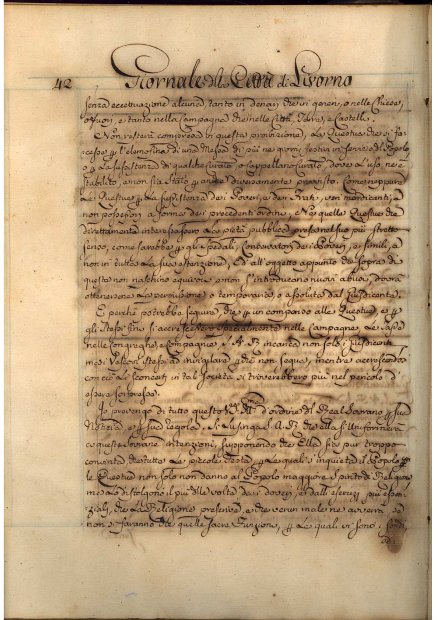 42 Giornale della Città di Livorno
senza eccettuazione alcuna tanto in denari che in generi, o nelle Chiese,
o fuori, e tanto nella Campagna che nelle Città, Terre, e Castelli.
Non resterà compresa in questa proibizione, la Questua che si fa-
cesse per l'elemosina di una Messa di più nei giorni festivi in Popolo,
o per la sussistenza di qualche Curato, o Cappellano Curato, dove l'uso ne è
stabilito e non sia stato per anche diversamente provvisto. Come neppure
le Questue per la sussistenza dei Poveri, e dei Frati, veri mendicanti, e
non possessori a forma dei precedenti ordini, Né quelle Questue che
direttamente interessassero la pietà pubblica presa nel suo più stretto
senso, come sarebbe per gli Spedali, Conservatori dei Poveri, e simili, e
non in tutta la sua estensione, Ed all'oggetto appunto che sopra di
questo non naschino equivoci e non s'introducano nuovi abusi, dovrà
ottenersene la permissione o temporanea, o assoluta dal Giusdicente.
E perché potrebbe seguire, che per un compenso alle Questue, e per
gli stessi fini si accrescessero specialmente nelle Campagne, le Tasse
nelle Congreghe, e Compagnie, S. A. R. incarica non solo i Giusdicenti
me di Vostra stessa ad invigilare che non segua, mentre accrescendo
con ciò gli sconcerti in tali Società si troverebbero più nel pericolo d'
essere soppresse.
Io prevengo di tutto questo d'ordine del Real Sovrano per sua
Notizia e per sua regola. Si lusinga S. A. R. che ella si uniformerà
a queste Sovrane intenzioni, supponendo che Ella sia pur troppo
convinta che tutte le piccole Feste, per le quali s'inquieta il Popolo per
le Questue non solo non danno al Popolo maggiore spirito di Religione,
ma lo distolgono il più delle volte dai doveri, e dalli esercizi più essen-
ziali, che la Religione prescrive, e che verun male ne avverrà se
non si faranno che quelle sacre Funzioni, per le quali vi sono i fondi,